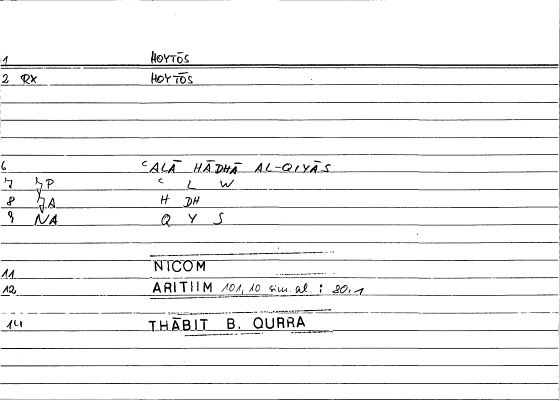 1 HOYTŌS
2 RX HOYTŌS
6 ᶜALĀ HĀDHĀ AL-QIYĀS
7 ᶜ L W
8 H DH
9 NA Q Y S
11 NICOM
12 ARITIIM 101,10 sim. al. : 20,1
14 THĀBIT B. QURRA